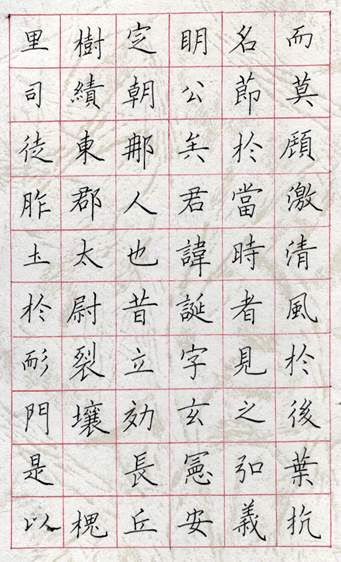 而莫頋激清風於後葉抗
名節於當時者見之弘義
明公矣君諱誕字玄憲安
定朝那人也昔立効長丘
樹績東郡太尉裂壤槐
里司徒胙土於耏門是以